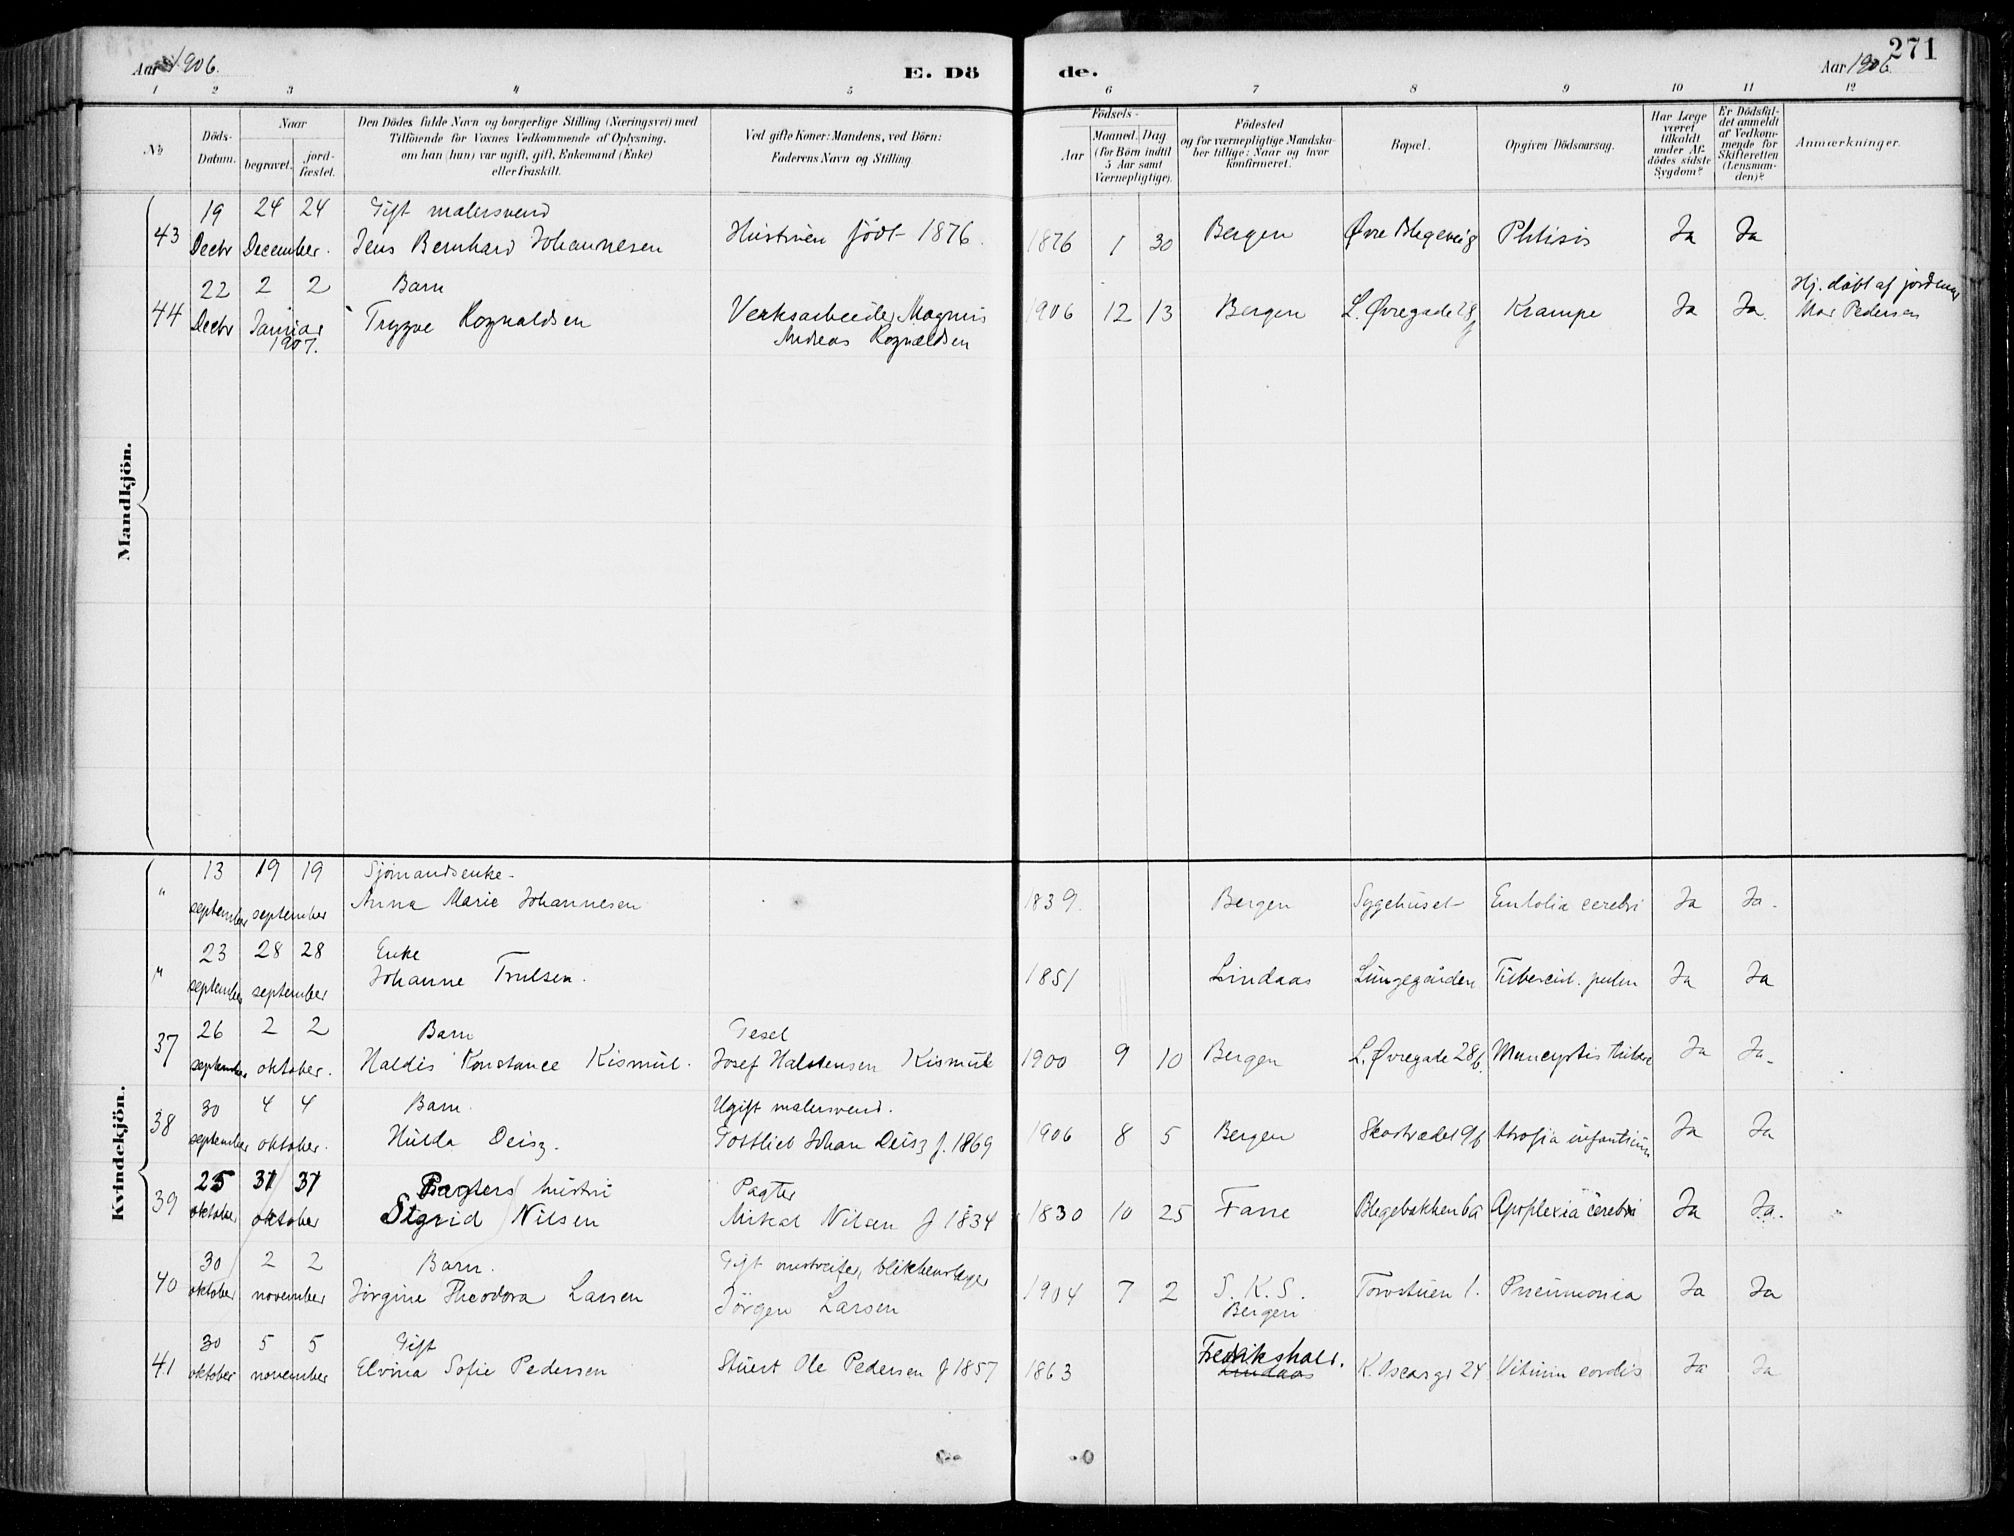 271
Aar 1906. E. Dö de. Aar 1906.
1 2 3 4 5 6 7 8 9 10 11 12
No
Döds-Datum.
Naar
begravet.
jordfæstet.
Den Dödes fulde Navn og borgerlige Stilling (Næringsvei) med
Tilföiende for Voxnes Vedkommende af Oplysning,
om han (hun) var ugift, gift, Enkemand (Enke)
eller fraskilt.
Ved gifte Koner: Mandens, ved Börn:
Faderens Navn og Stilling
Födsels-
Aar
Maaned. Dag
(for Börn indtil
5 Aar samt
Værnepligtige).
Födested
og for værnepligtige Mandska-
ber tillige: Naar og hvor
konfirmeret.
Bopæl.
Opgiven Dödsaarsag.
Har Læge
været
tilkaldt
under Af-
dödes sidste
Sygdom?
Er Dödsfal-
det anmeldt
af Vedkom-
mende for
Skifteretten
(Lensman-
den)?
Anmærkninger.
Mandkjön.
19 24 24 Gift malersvend
43 Decbr December. Jens Bernhard Johannesen Hustruen født 1876. 1876 1 30 Bergen Øvre Blegevei Phtisis Ja Ja
22 2 2 Barn Hj. døbt af jordemor
44 Decbr Januar Trygve Rognaldsen Verksarbeider Magnus 1906 12 13 Bergen L. Øvregade 28 Krampe Ja Ja. Mar Pedersen
1907. Andreas Rognaldsen
Kvindekjön.
13 19 19 Sjømandsenke.
" september september Anna Marie Johannesen 1839. Bergen Sygehuset cerebri Ja Ja.
23 28 28 Enke
" september september Johanne Trulsen. 1851 Lindaas Lungegården Tubercul. pulm Ja Ja
26 2 2 Barn Gesel
37 september oktober. Haldis Konstance Kismul. Josef Halstensen Kismul 1900 9 10 Bergen L. Øvregade 28b. Ja Ja.
30 4 4 Barn. Ugift malersvend.
38 september oktober. Hulda Deisz. Gottlieb Johan Deisz f. 1869 1906 8 5 Bergen Skostrædet 9b Atrofia infantium Ja Ja
25 31 31 Pagters hustru Pagter
39 oktober oktober Sigrid Nilsen Mikal Nilsen f 1834 1830 10 25 Fane Blegebakken 6a Apoplexia cerebri Ja Ja.
30 2 2 Barn. Gift omstreifer, blikkenslager
40 oktober november Jørgine Theodora Larsen Jørgen Larsen 1904 7 2 S. K. S. Torvstuen 1. Pneumonia Ja Ja
Bergen
30 5 5 Gift Fredrikshald.
41 oktober november Elvina Sofie Pedersen Stuert Ole Pedersen f 1857 1863 Lindaas K. Oscarsg. 24 Vitium cordis Ja Ja